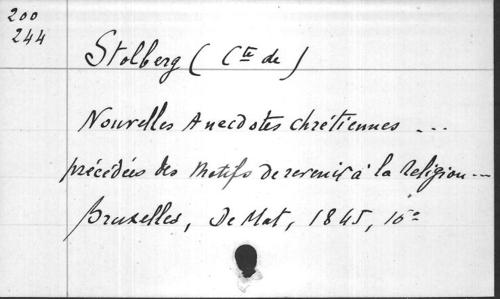 200
244
Stolberg (Cte de)
Nouvelles Anecdotes chrétiennes ...
précédées des Motifs de revenir à la Religion ...
Bruxelles, De Mat, 1845, 16°